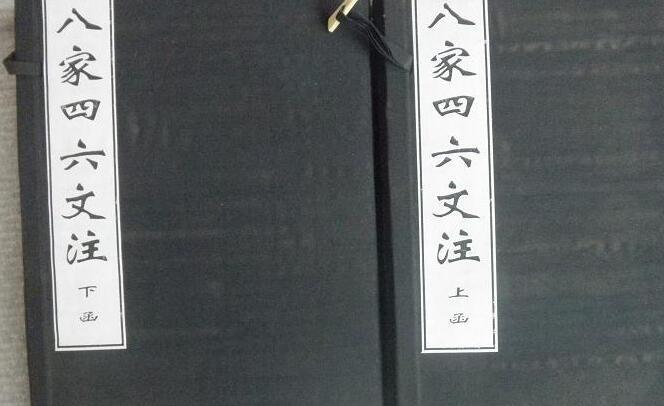 八家四六文注 上函
八家四六文注 下函